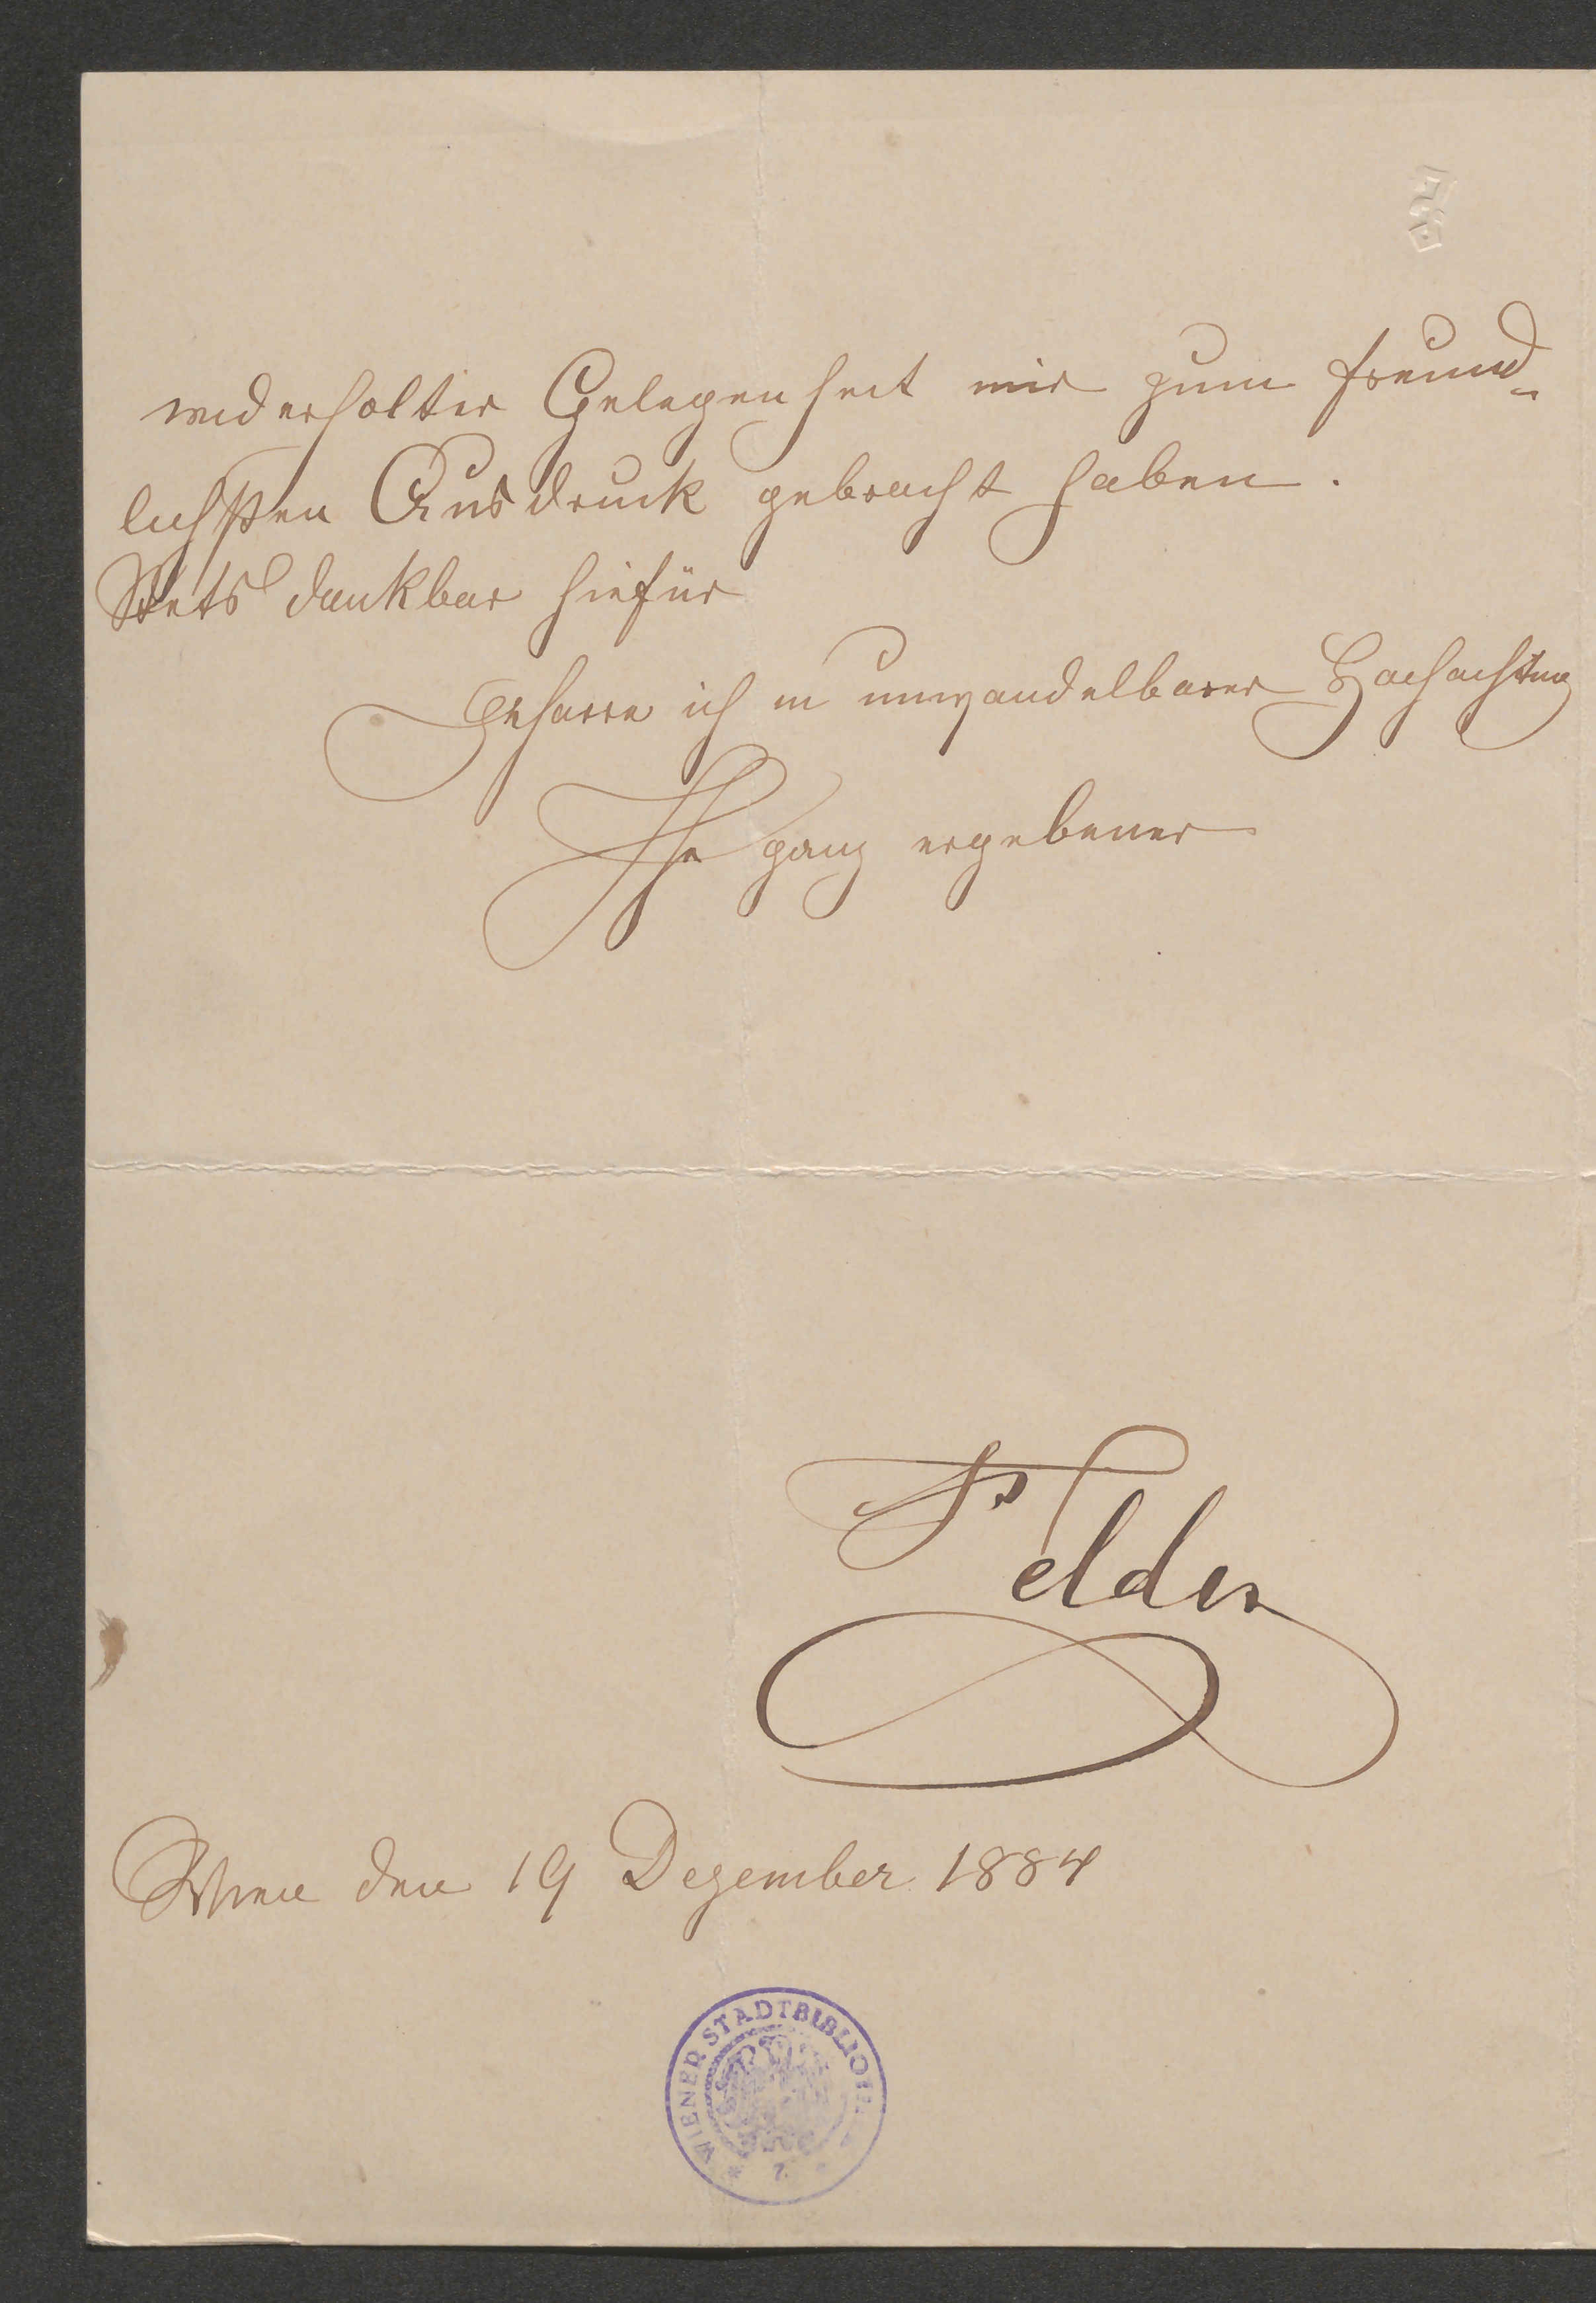 widerholter Gelegenheit mir zum freund-
lichsten Ausdruck gebracht haben.
Stets dankbar hiefür
geharre ich in unwandelbarer Hochachtung
Ihr ganz ergebener
Dr Felder
Wien den 19 Dezember 1884
WIENER STADTBIBLIOTHEK